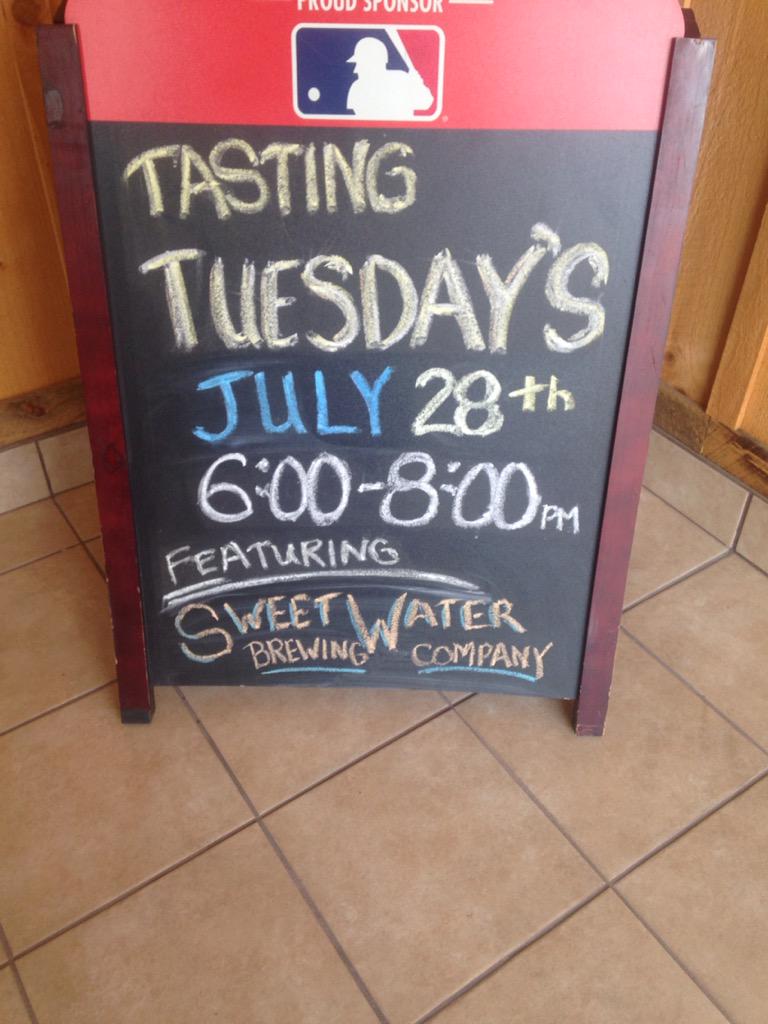 PROUD SPONSOR
TASTING
TUESDAY'S
JULY 28th
6:00-8:00 PM
FEATURING
SWEETWATER
BREWING COMPANY